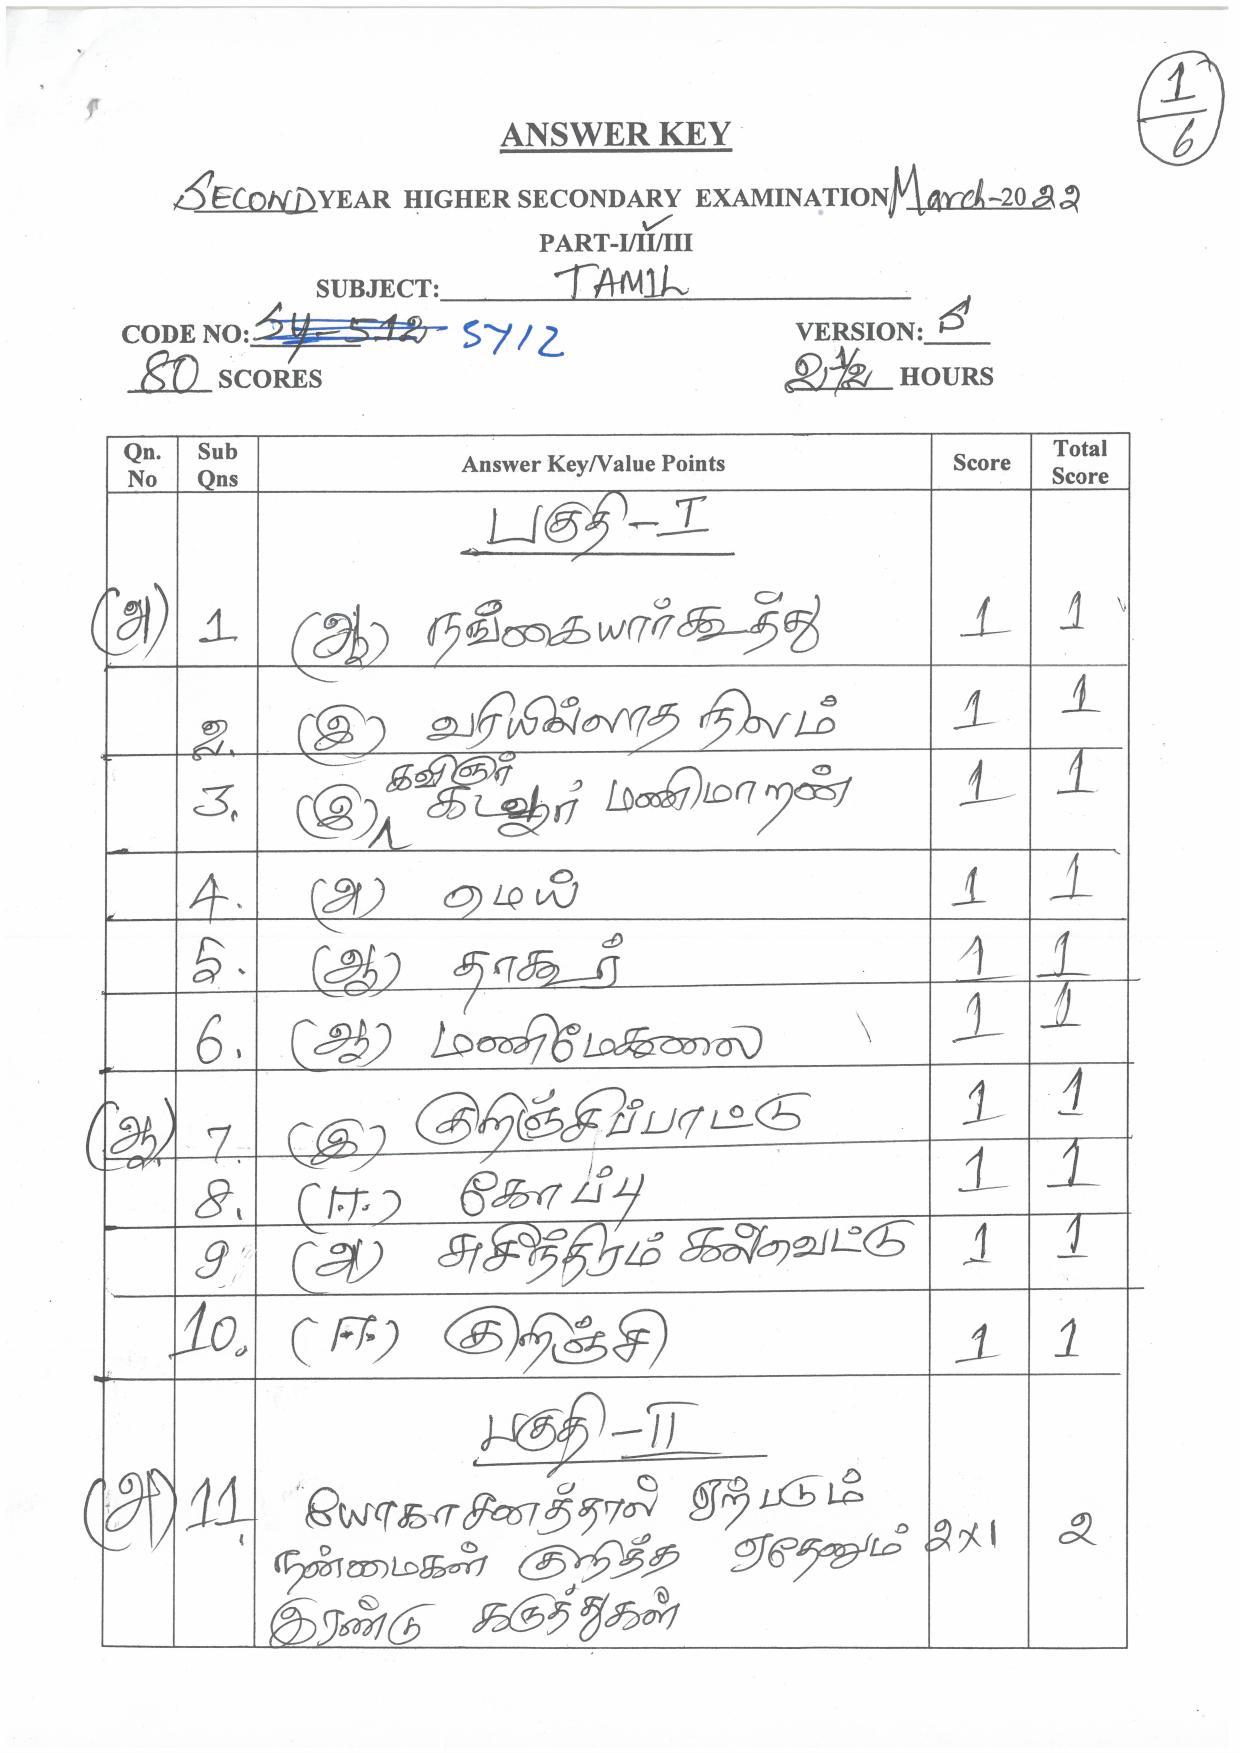 1/6
ANSWER KEY
SECOND YEAR HIGHER SECONDARY EXAMINATION March-2022
PART-I/II/III
SUBJECT: TAMIL
CODE NO: SY-512 SY12 VERSION: S
80 SCORES 2 1/2 HOURS
Qn. No Sub Qns Answer Key/Value Points Score Total Score
பகுதி - I
(அ) 1 (ஆ) நங்கையார்கூத்து 1 1
2. (இ) வரியில்லாத நிலம் 1 1
3. (இ) கவிஞர் கடலூர் மணிமாறன் 1 1
4. (அ) மெய் 1 1
5. (ஆ) தாகூர் 1 1
6. (ஆ) மணிமேகலை 1 1
(ஆ) 7. (இ) குறிஞ்சிப்பாட்டு 1 1
8. (ஈ) கோப்பு 1 1
9 (அ) சுசீந்திரம் கல்வெட்டு 1 1
10. (ஈ) குறிஞ்சி 1 1
பகுதி - II
(அ) 11. யோகாசனத்தால் ஏற்படும்
நன்மைகள் குறித்த ஏதேனும் 2x1 2
இரண்டு கருத்துகள்